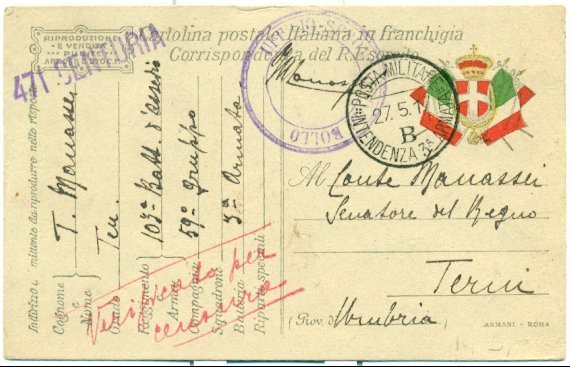 RIPRODUZIONE
E VENDITA
PUNITE
471 CENTURIA
Cartolina postale Italiana in franchigia
Corrispondenza del R. Esercito
Manassei
BOLLO
POSTA MILITARE
27.5.1
B
INTENDENZA 3ª ARMATA
Al Conte Manassei
Senatore del Regno
Terni
(Prov. di Umbria
ARMANI - ROMA
Indirizzo del mittente da riprodurre nella risposta
Cognome T. Manassei
Nome
Grado Ten.
Reggimento 103º Batt. d'assedio
Arma
Compagnia 59º gruppo
Squadrone
Batteria 3ª Armata
Riparti speciali
Verificato per
censura